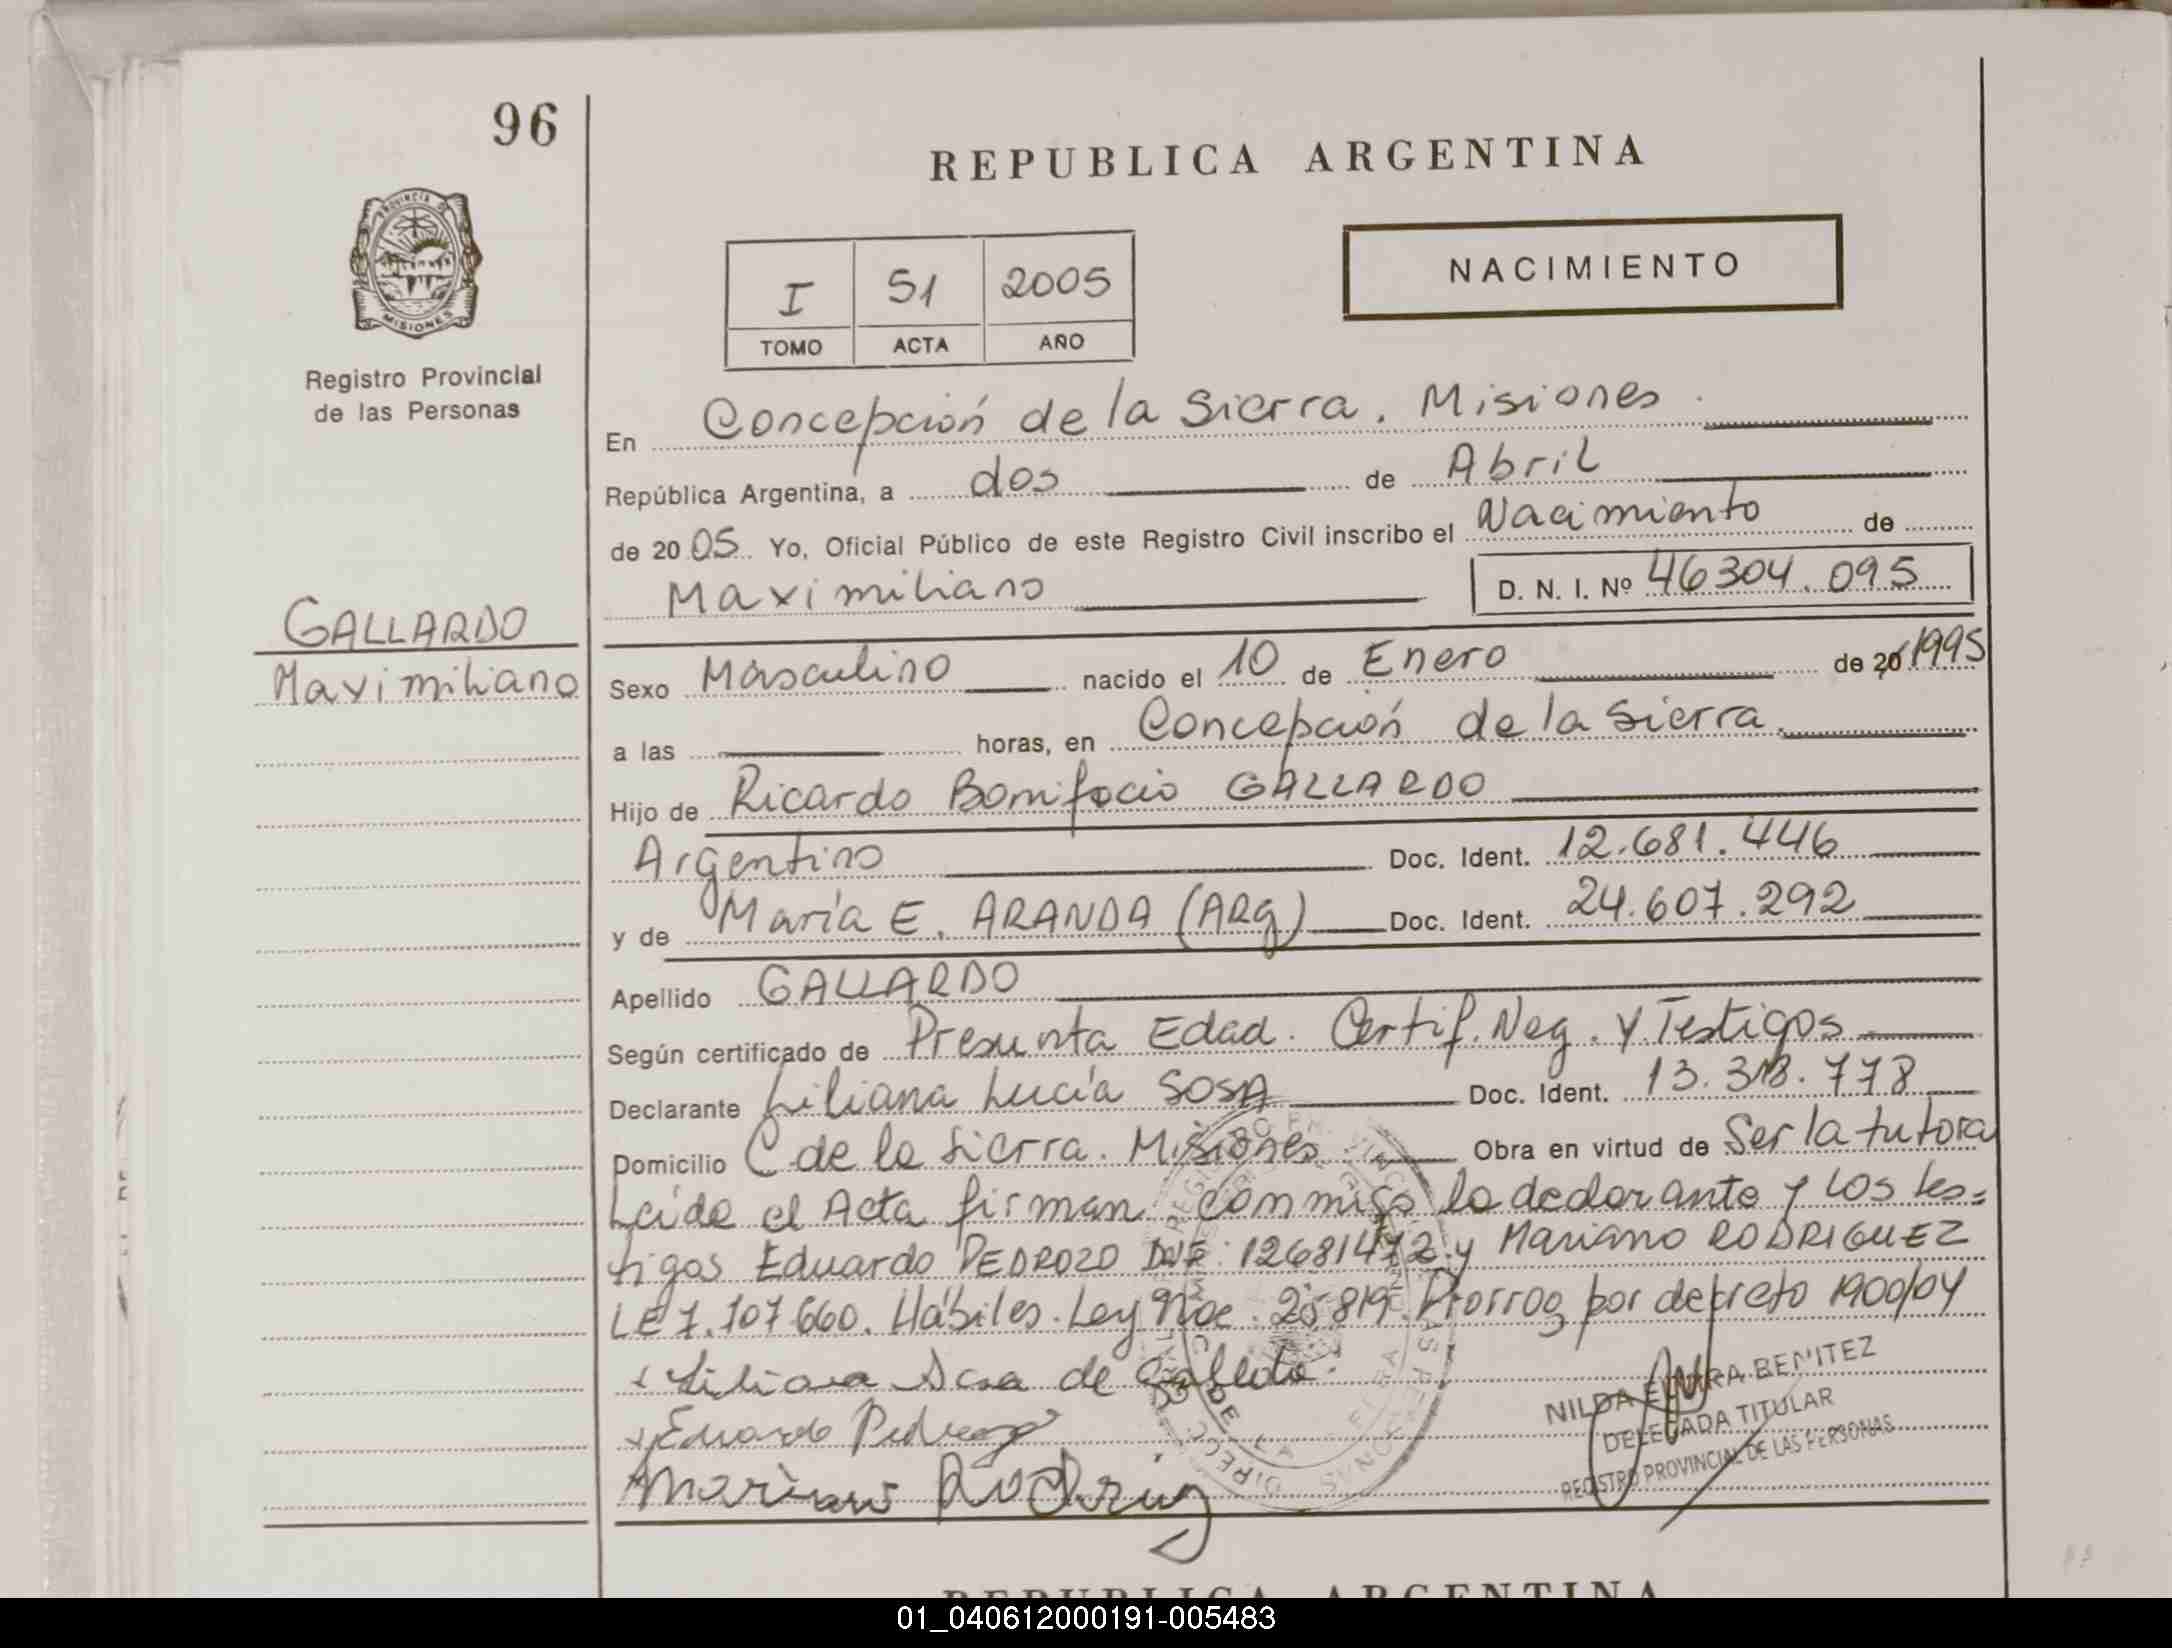 96
REPUBLICA ARGENTINA
PROVINCIA DE
MISIONES
Registro Provincial
de las Personas
I 51 2005
TOMO ACTA AÑO
NACIMIENTO
En Concepción de la Sierra. Misiones.
República Argentina, a dos de Abril
de 2005 Yo, Oficial Público de este Registro Civil inscribo el Nacimiento de
Maximiliano D. N. I. Nº 46304.095
GALLARDO
Maximiliano
Sexo Masculino nacido el 10 de Enero de 20 1995
a las horas, en Concepción de la Sierra
Hijo de Ricardo Bonifacio GALLARDO
Argentino Doc. Ident. 12.681.446
y de María E. ARANDA (ARg) Doc. Ident. 24.607.292
Apellido GALLARDO
Según certificado de Presunta Edad. Certif. Neg. y Testigos
Declarante Liliana Lucía SOSA Doc. Ident. 13. .778
Domicilio C. de la Sierra. Misiones Obra en virtud de Ser la tutora
Leída el Acta firman conmigo la declarante y los tes=
tigos Eduardo PEDROZO DNI: 12681472 y Mariano RODRIGUEZ
LE 7.107.660. Hábiles. Ley 25819. Prorrog por decreto 1900/04
Liliana Sosa de
Eduardo Pedrozo
Mariano Rodrig
NILDA ELVIRA BENITEZ
DELEGADA TITULAR
REGISTRO PROVINCIAL DE LAS PERSONAS
REPUBLICA ARGENTINA
01_040612000191-005483